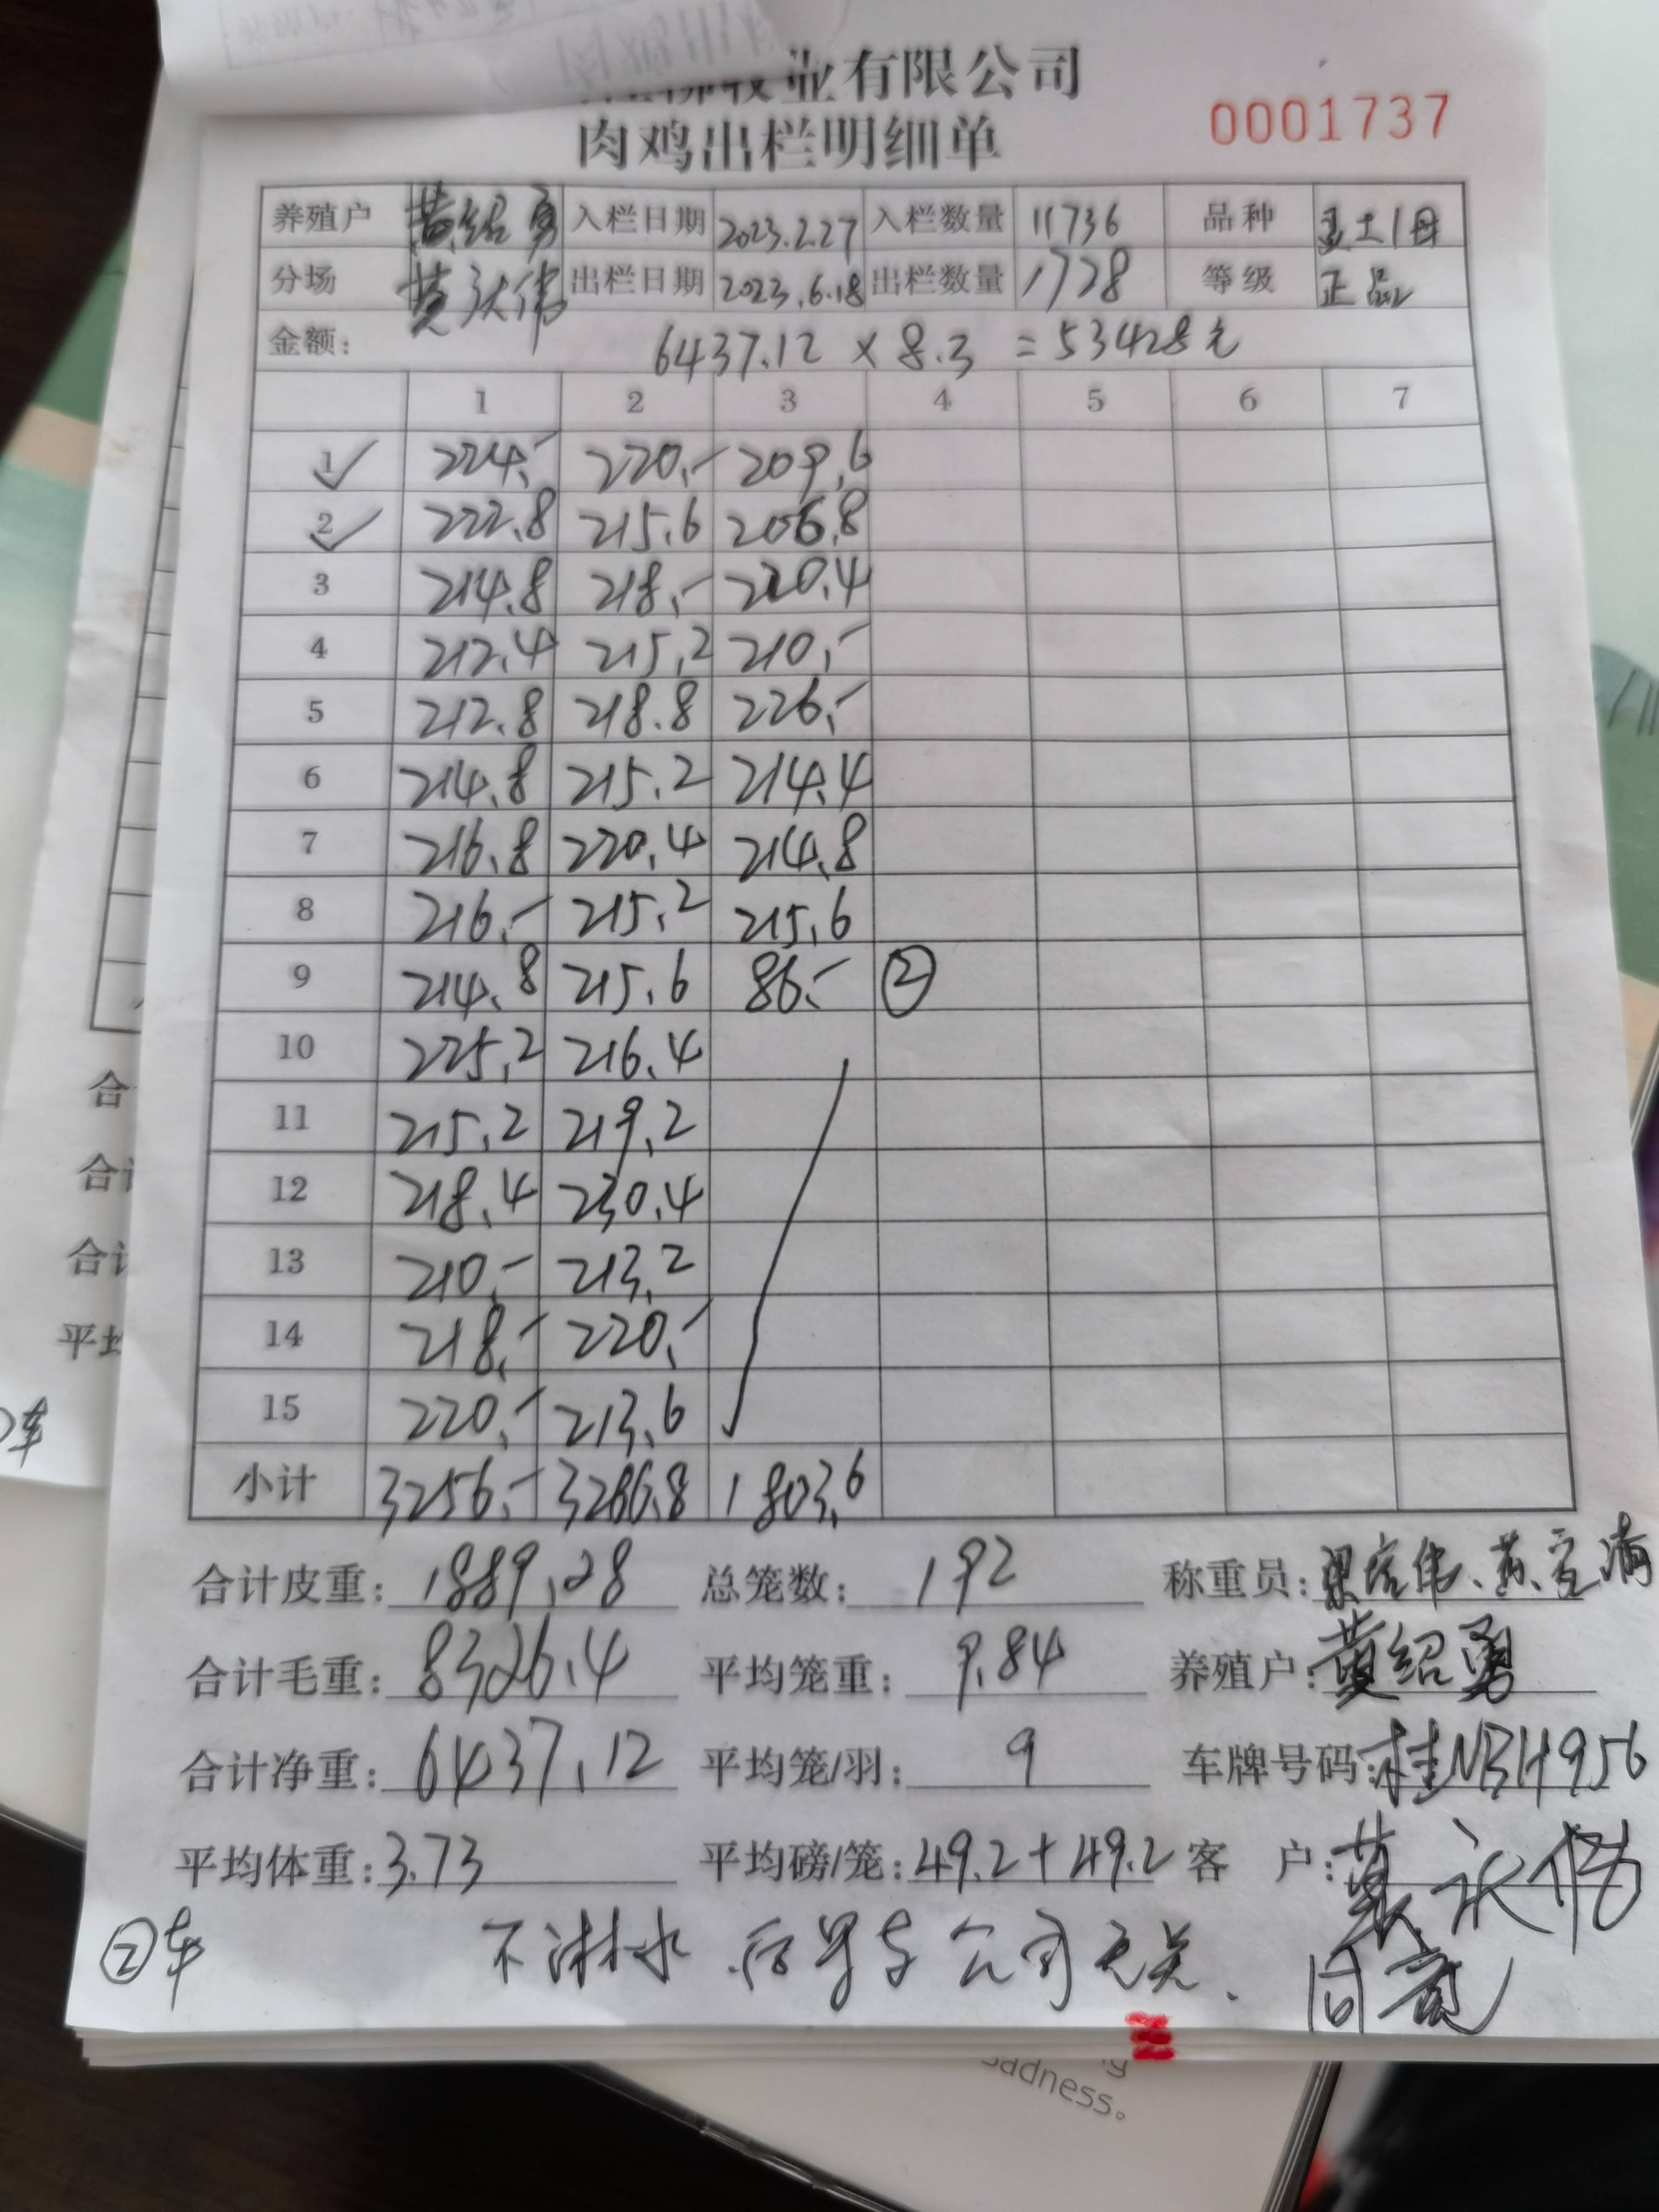 牧业有限公司
肉鸡出栏明细单 0001737
养殖户 黄绍勇 入栏日期 2023.2.27 入栏数量 11736 品种 土1母
分场 出栏日期 2023.6.18 出栏数量 1728 等级 正品
金额: 6437.12 × 8.3 = 53428元
1 2 3 4 5 6 7
1 224.- 220.- 209.6
2 222.8 215.6 206.8
3 214.8 218.- 220.4
4 212.4 215.2 210.-
5 212.8 218.8 226.-
6 214.8 215.2 214.4
7 216.8 220.4 214.8
8 216.- 215.2 215.6
9 214.8 215.6 86.- ②
10 225.2 216.4
11 215.2 219.2
12 218.4 230.4
13 210.- 213.2
14 218.- 220.-
15 220.- 213.6
小计 3256.- 3266.8 1803.6
合计皮重: 1889.28 总笼数: 192 称重员:
合计毛重: 8326.4 平均笼重: 9.84 养殖户: 黄绍勇
合计净重: 6437.12 平均笼/羽: 9 车牌号码: 桂NBH956
平均体重: 3.73 平均磅/笼: 49.2+49.2 客 户:
②车 不淋水.后果与公司无关.
合
合计
合计
平均
车
sadness。